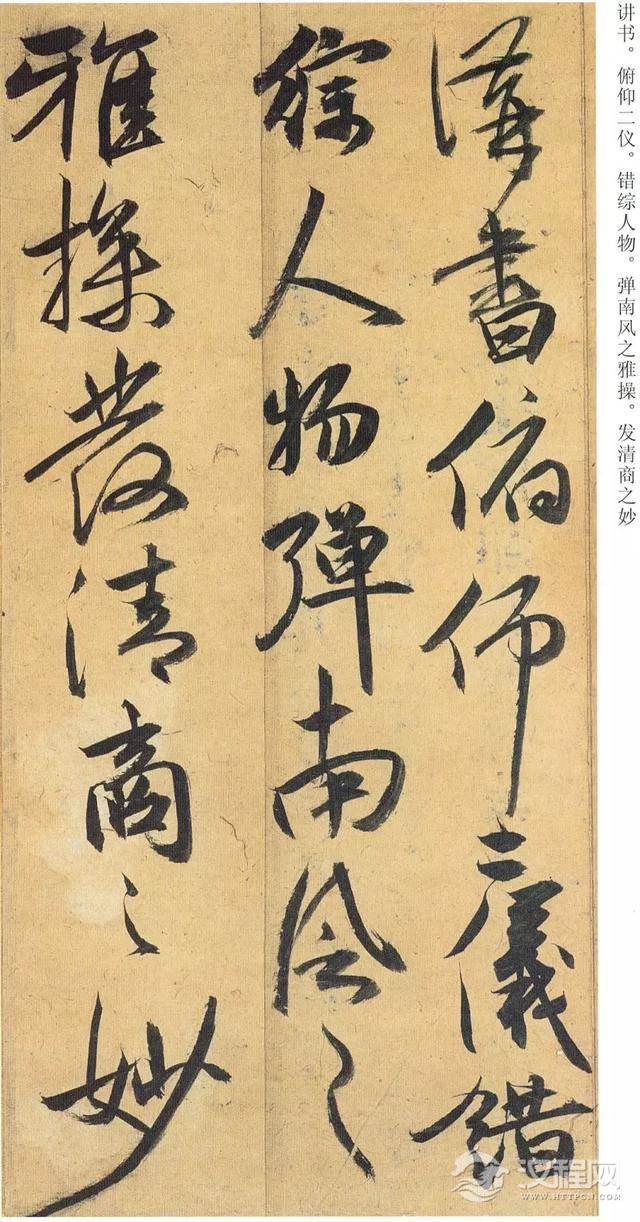 讲书。俯仰二仪。错综人物。弹南风之雅操。发清商之妙
講書俯仰二儀錯
綜人物彈南風之
雅操發清商之妙
汉程网
WWW.HTTPCN.COM